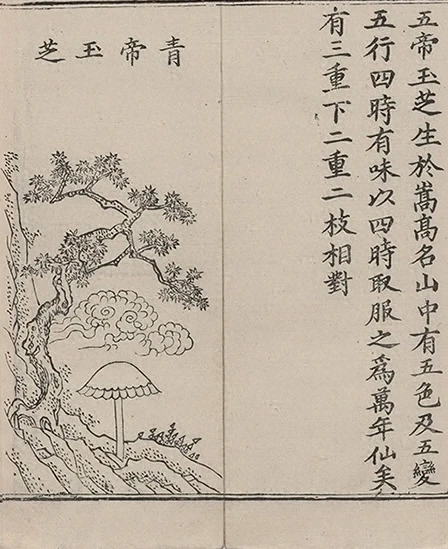 五帝玉芝生於嵩高名山中有五色及五變
五行四時有味以四時取服之爲萬年仙矣
有三重下二重二枝相對
青帝玉芝